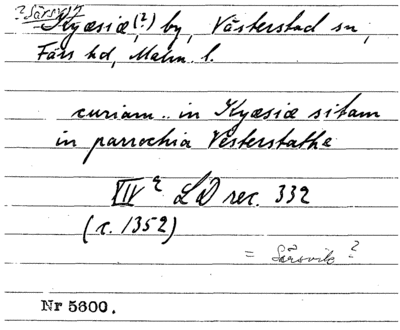 ? Särsvik
Kyæsiæ (?), by, Västerstad sn,
Färs hd, Malm. l.
curiam .. in Kyæsiæ sitam
in parrochia Vesterstathe
XIV 2 LD rec. 332
(c. 1352)
= Särsvik ?
Nr 5600.